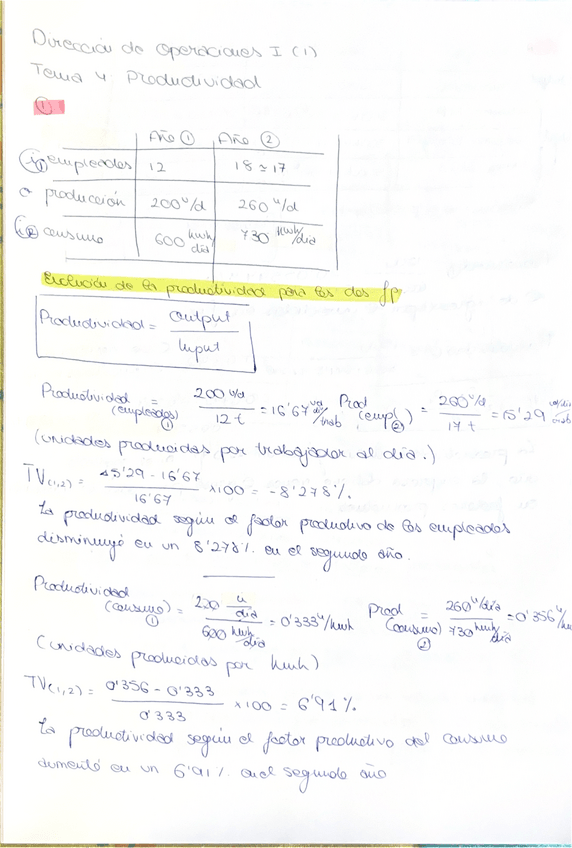 Dirección de Operaciones I (1)
Tema 4 Productividad
①
Año ① Año ②
i₁ empleados 12 18 ≃ 17
o producción 200 u/d 260 u/d
i₂ consumo 600 kwh/día 730 kwh/día
Evolución de la productividad para los dos fp
Productividad = output / Input
Productividad (empleados) ① = 200 u/d / 12 t = 16'67 Prod (empl) ② = 260 u/d / 17 t = 15'29
(unidades producidas por trabajador al día.)
TV(1,2) = 15'29 - 16'67 / 16'67 x100 = -8'278%.
La productividad según el factor productivo de los empleados
disminuyó en un 8'278% en el segundo año.
Productividad (consumo) ① = 220 u/día / 600 kwh/día = 0'333 u/kwh Prod (consumo) ② = 260 u/día / 730 kwh/día = 0'356
(unidades producidas por kwh)
TV(1,2) = 0'356 - 0'333 / 0'333 x100 = 6'91%.
La productividad según el factor productivo del consumo
aumentó en un 6'91% en el segundo año